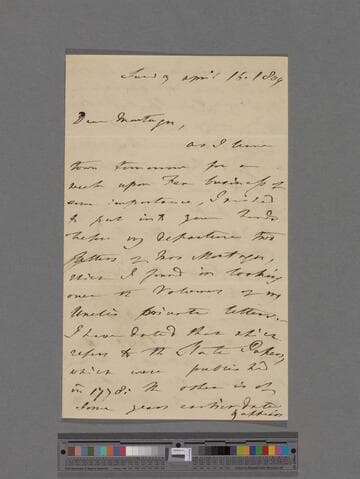 april 16. 1809
Dear Montagu,
as I leave
town tomorrow for a
week upon business of
some importance, I
to put into your hands
before my departure two
Letters of Mrs Montagu,
which I found in looking
over the Volumes of my
Uncle's private letters.
I have dated that which
refers to the State Papers,
which were published
in 1778: the other is of
some years earlier date